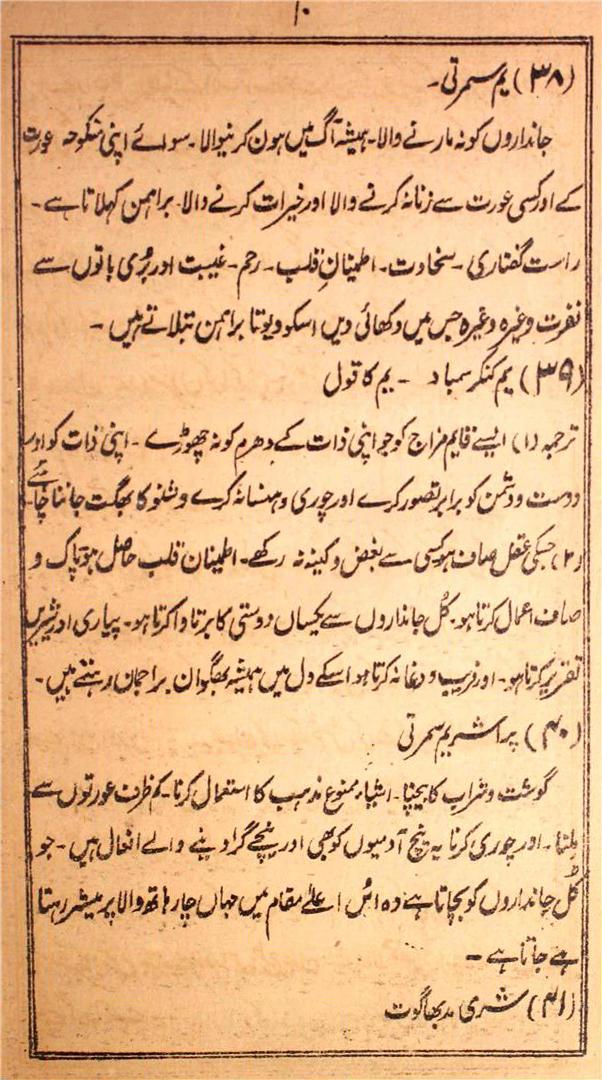 ۱۰
(۳۸) یم سمرتی۔
جانداروں کو نہ مارنے والا۔ ہمیشہ آگ میں ہون کرنیوالا۔ سوائے اپنی منکوحہ عورت
کے اور کسی عورت سے زنا نہ کرنے والا اور خیرات کرنے والا۔ براہمن کہلاتا ہے۔
راست گفتاری۔ سخاوت۔ اطمینانِ قلب۔ رحم۔ غیبت اور بُری باتوں سے
نفرت وغیرہ وغیرہ جس میں دکھائی دیں اسکو دیوتا براہمن بتلاتے ہیں۔
(۳۹) یم کنکر سمباد ۔ یم کا قول
ترجمہ (۱) ایسے قایم مزاج کو جو اپنی ذات کے دھرم کو نہ چھوڑے۔ اپنی ذات کو اور
دوست و دشمن کو برابر تصور کرے اور چوری و ہنسا نہ کرے وشنو کا بھگت جاننا چاہئے۔
(۲) جسکی عقل صاف ہو کسی سے بغض و کینہ نہ رکھے۔ اطمینان قلب حاصل ہو۔ پاک و
صاف اعمال کرتا ہو۔ کُل جانداروں سے یکساں دوستی کا برتاوا کرتا ہو۔ پیاری اور شیریں
تقریر کرتا ہو۔ اور فریب و دغا نہ کرتا ہو اسکے دل میں ہمیشہ بھگوان براجمان رہتے ہیں۔
(۴۰) پراشریم سمرتی
گوشت و شراب کا بیچنا۔ اشیاء ممنوع مذہب کا استعمال کرنا۔ کم ظرف عورتوں سے
ملنا۔ اور چوری کرنا یہ پنچ آدمیوں کو بھی اور نیچے گرا دینے والے افعال ہیں۔ جو
کُل جانداروں کو بچاتا ہے وہ اُس اعلےٰ مقام میں جہاں چار ہاتھ والا پرمیشر رہتا
ہے جاتا ہے۔
(۴۱) شری مدبھاگوت